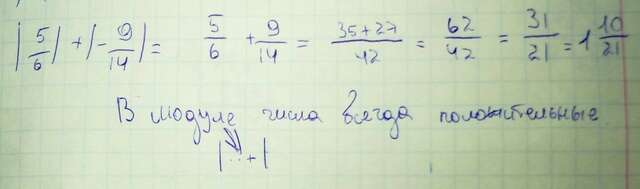 |5/6| + |-9/14| = 5/6 + 9/14 = 35+27/42 = 62/42 = 31/21 = 1 10/21
В модуле числа всегда положительные
|..+|